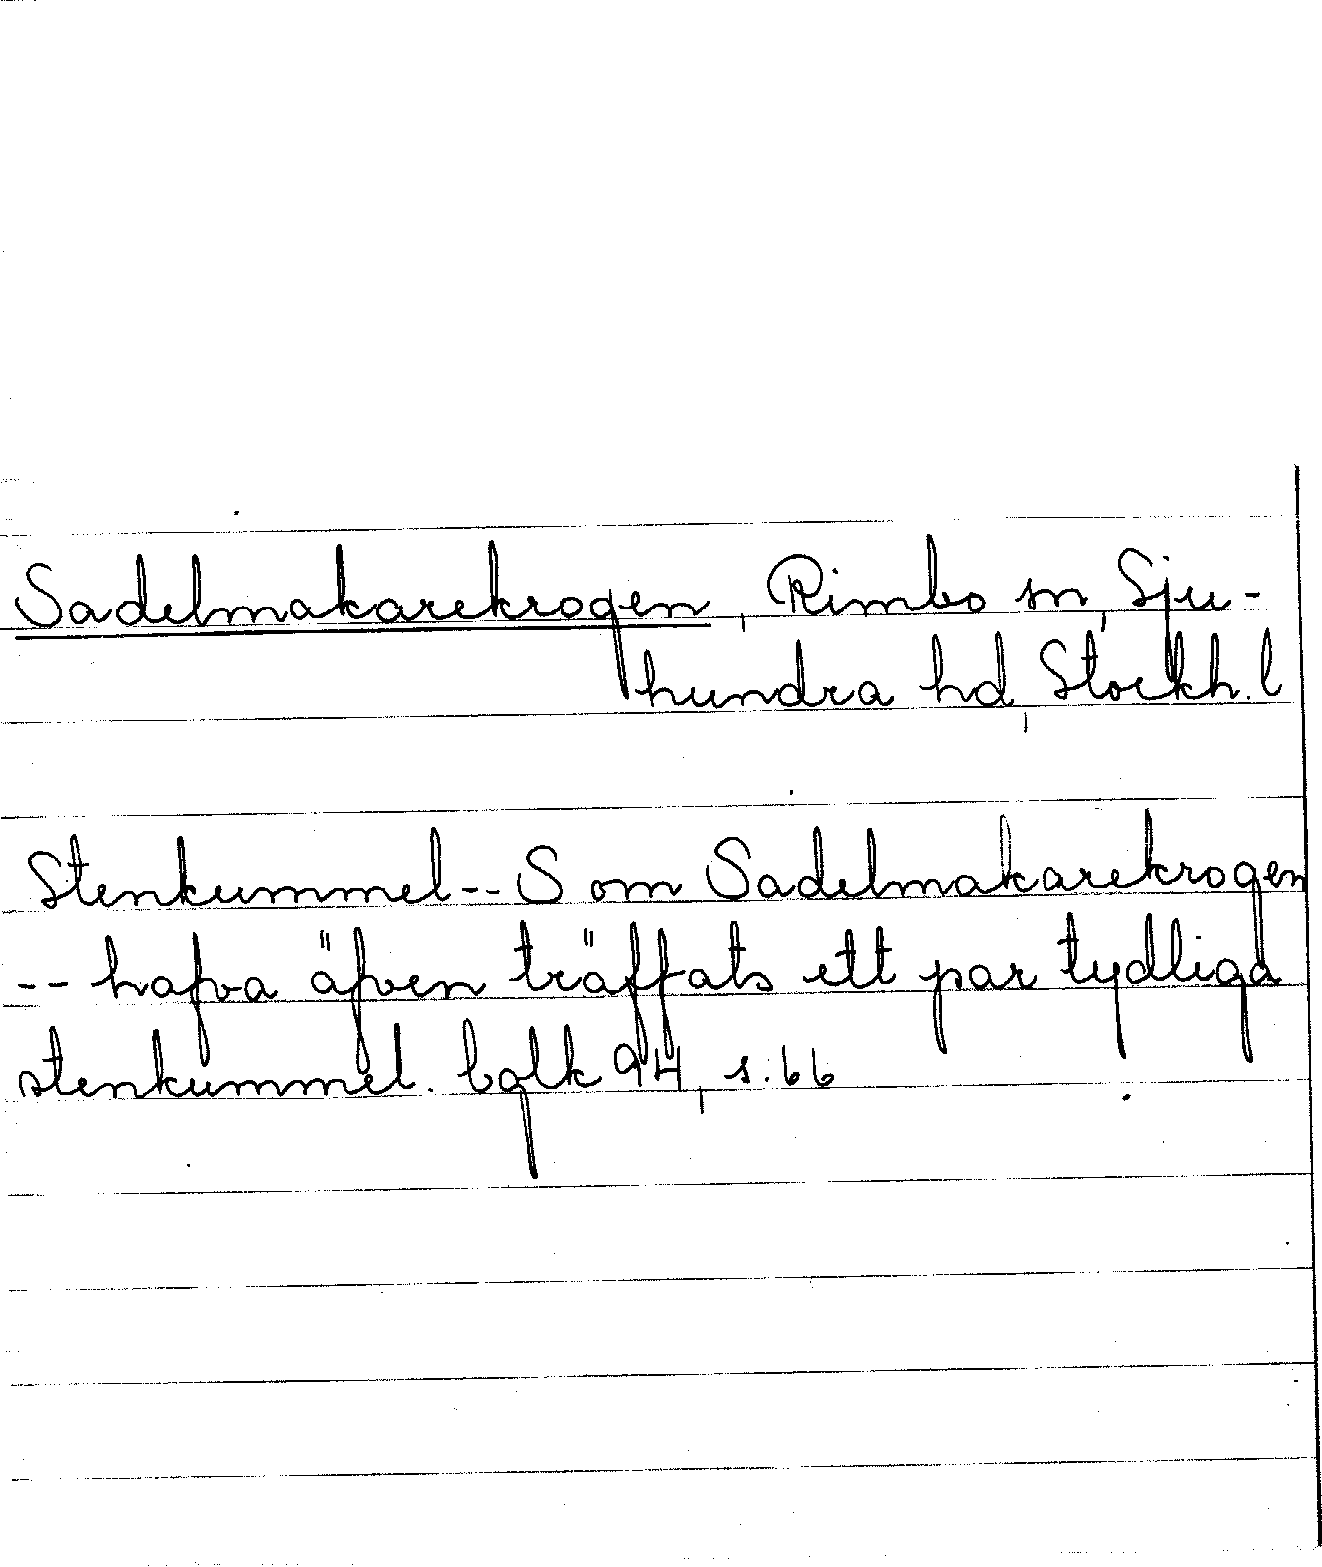 Sadelmakarekrogen, Rimbo sn, Sju-
hundra hd, Stockh. l
Stenkummel -- S om Sadelmakarekrogen
-- hafva äfven träffats ett par tydliga
stenkummel. bqlk 94, s. 66